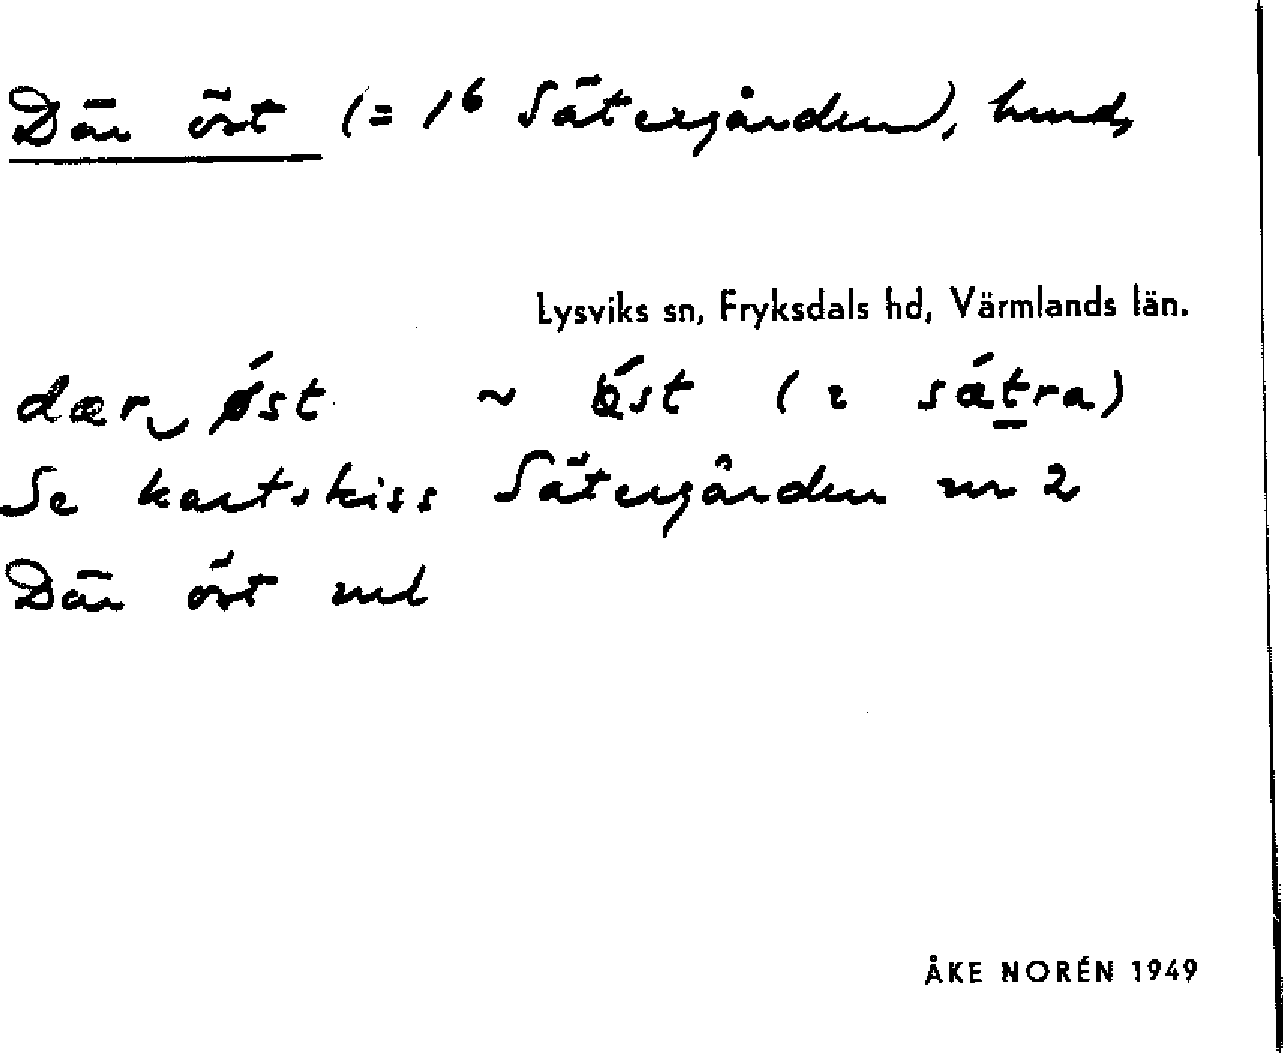 Där öst (= 1⁶ Sätergården), hmd,
Lysviks sn, Fryksdals hd, Värmlands län.
dær‿ǿst ~ öst (= sǽtra)
Se kartskiss Sätergården nr 2
Där öst
ÅKE NORÉN 1949